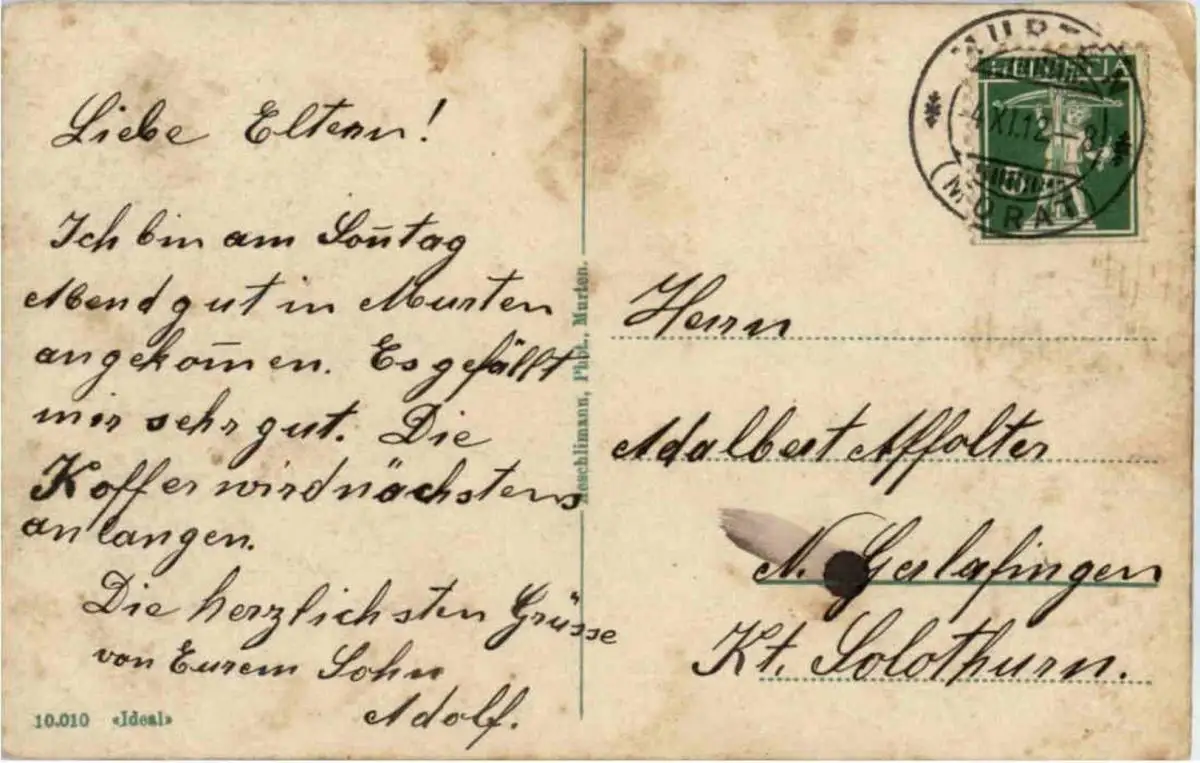 Liebe Eltern!
Ich bin am Son̄tag
Abend gut in Murten
angekom̄en. Es gefällt
mir sehr gut. Die
Koffer wird nächstens
anlangen.
Die herzlichsten Grüsse
von Eurem Sohn
Adolf.
10.010 «Ideal»
Aeschlimann, Phot., Murten.
MURTEN
HELVETIA
-4.XI.12-8
(MORAT)
Herrn
Adalbert Affolter
N. Gerlafingen
Kt. Solothurn.